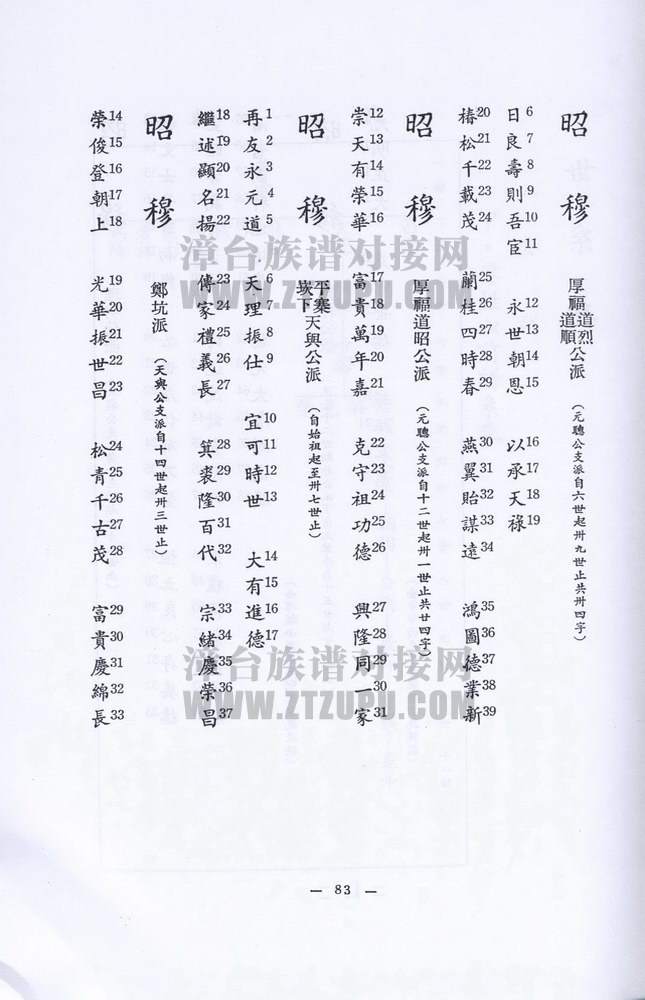 昭穆 厚福道烈道順公派（元聰公支派自六世起卅九世止共卅四字）
日6良7壽8則9吾10宦11 永12世13朝14恩15 以16承17天18祿19
椿20松21千22載23茂24 蘭25桂26四27時28春29 燕30翼31貽32謀33遠34 鴻35圖36德37業38新39
昭穆 厚福道昭公派（元聰公支派自十二世起卅一世止共廿四字）
崇12天13有14榮15華16 富17貴18萬19年20嘉21 克22守23祖24功25德26 興27隆28同29一30家31
昭穆 平寨崁下天與公派（自始祖起至卅七世止）
再1友2永3元4道5 天6理7振8仕9 宜10可11時12世13 大14有15進16德17
繼18述19顯20名21揚22 傳23家24禮25義26長27 箕28裘29隆30百31代32 宗33緒34慶35榮36昌37
昭穆 鄭坑派（天與公支派自十四世起卅三世止）
榮14俊15登16朝17上18 光19華20振21世22昌23 松24青25千26古27茂28 富29貴30慶31綿32長33
漳台族谱对接网
WWW.ZTZUPU.COM
漳台族谱对接网
WWW.ZTZUPU.COM
— 83 —